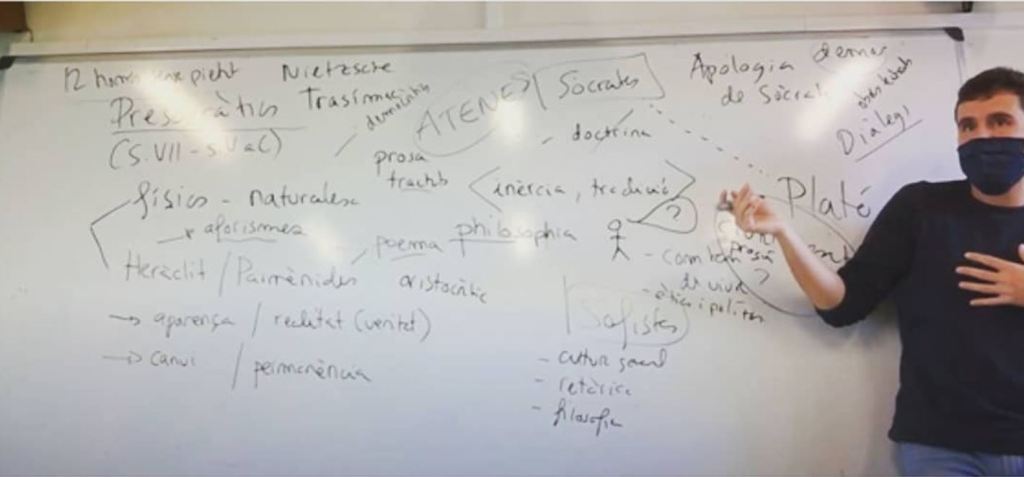 12 homes
Nietzsche
Trasímac
Presocràtics
(S.VII - s.V aC)
físics - naturalesa
→ aforismes
Heràclit / Parmènides
poema
→ aparença / realitat (veritat)
→ canvi / permanència
ATENES
Sòcrates
- doctrina
prosa
tractats
inèrcia, tradició
philosophia
aristocràtic
?
- com hem
de viure?
- ètica i política
Sofistes
- cultura general
- retòrica
- filosofia
Apologia
de Sòcrates
Diàlegs
Plató
prosa